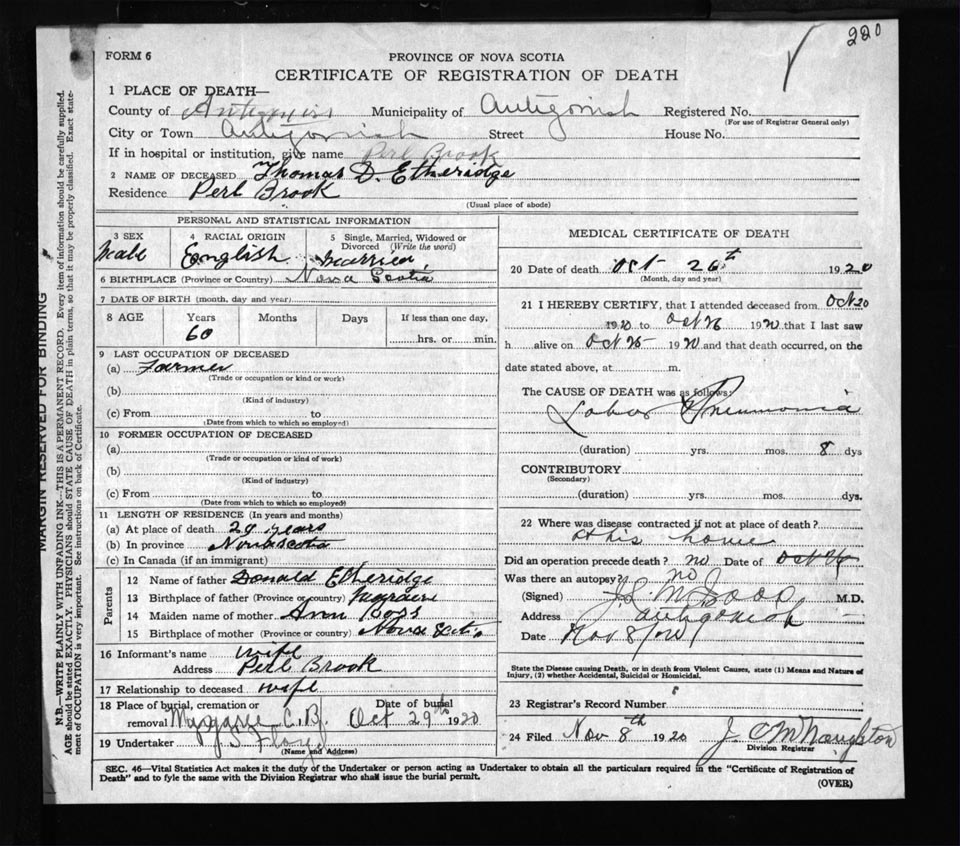 220
FORM 6
PROVINCE OF NOVA SCOTIA
CERTIFICATE OF REGISTRATION OF DEATH
1 PLACE OF DEATH—
County of Antigonish Municipality of Antigonish Registered No.
(For use of Registrar General only)
City or Town Antigonish Street House No.
If in hospital or institution, give name Perl Brook
2 NAME OF DECEASED Thomas D. Etheridge
Residence Perl Brook
(Usual place of abode)
PERSONAL AND STATISTICAL INFORMATION
3 SEX
Male
4 RACIAL ORIGIN
English
5 Single, Married, Widowed or Divorced (Write the word)
Married
6 BIRTHPLACE (Province or Country) Nova Scotia
7 DATE OF BIRTH (month, day and year)
8 AGE Years Months Days If less than one day.
60 hrs. or min.
9 LAST OCCUPATION OF DECEASED
(a) Farmer
(Trade or occupation or kind or work)
(b)
(Kind of industry)
(c) From to
(Date from which to which so employed)
10 FORMER OCCUPATION OF DECEASED
(a)
(Trade or occupation or kind of work)
(b)
(Kind of industry)
(c) From to
(Date from which to which so employed)
11 LENGTH OF RESIDENCE (In years and months)
(a) At place of death 29 years
(b) In province Nova Scotia
(c) In Canada (if an immigrant)
Parents
12 Name of father Donald Etheridge
13 Birthplace of father (Province or country)
14 Maiden name of mother Ann Ross
15 Birthplace of mother (Province or country) Nova Scotia
16 Informant's name wife
Address Perl Brook
17 Relationship to deceased wife
18 Place of burial, cremation or Date of burial
removal Margaree C.B. Oct 29th 1920
19 Undertaker J.S. Floyd
(Name and Address)
MEDICAL CERTIFICATE OF DEATH
20 Date of death Oct 26th 1920
(Month, day and year)
21 I HEREBY CERTIFY, that I attended deceased from Oct 20
1920 to Oct 26 1920 that I last saw
h alive on Oct 25 1920 and that death occurred, on the
date stated above, at m.
The CAUSE OF DEATH was as follows:
Lobar Pneumonia
(duration) yrs. mos. 8 dys
CONTRIBUTORY
(Secondary)
(duration) yrs. mos. dys.
22 Where was disease contracted if not at place of death?
At his home
Did an operation precede death? no Date of Oct
Was there an autopsy? no
(Signed) M.D.
Address Antigonish
Date Nov 8/20
State the Disease causing Death, or in death from Violent Causes, state (1) Means and Nature of
Injury, (2) whether Accidental, Suicidal or Homicidal.
23 Registrar's Record Number
24 Filed Nov 8th 1920
Division Registrar
SEC. 46—Vital Statistics Act makes it the duty of the Undertaker or person acting as Undertaker to obtain all the particulars required in the "Certificate of Registration of
Death" and to fyle the same with the Division Registrar who shall issue the burial permit.
(OVER)
MARGIN RESERVED FOR BINDING
N.B.—WRITE PLAINLY WITH UNFADING INK—THIS IS A PERMANENT RECORD. Every item of information should be carefully supplied.
AGE should be stated EXACTLY. PHYSICIANS should STATE CAUSE OF DEATH in plain terms, so that it may be properly classified. Exact state-
ment of OCCUPATION is very important. See instructions on back of Certificate.